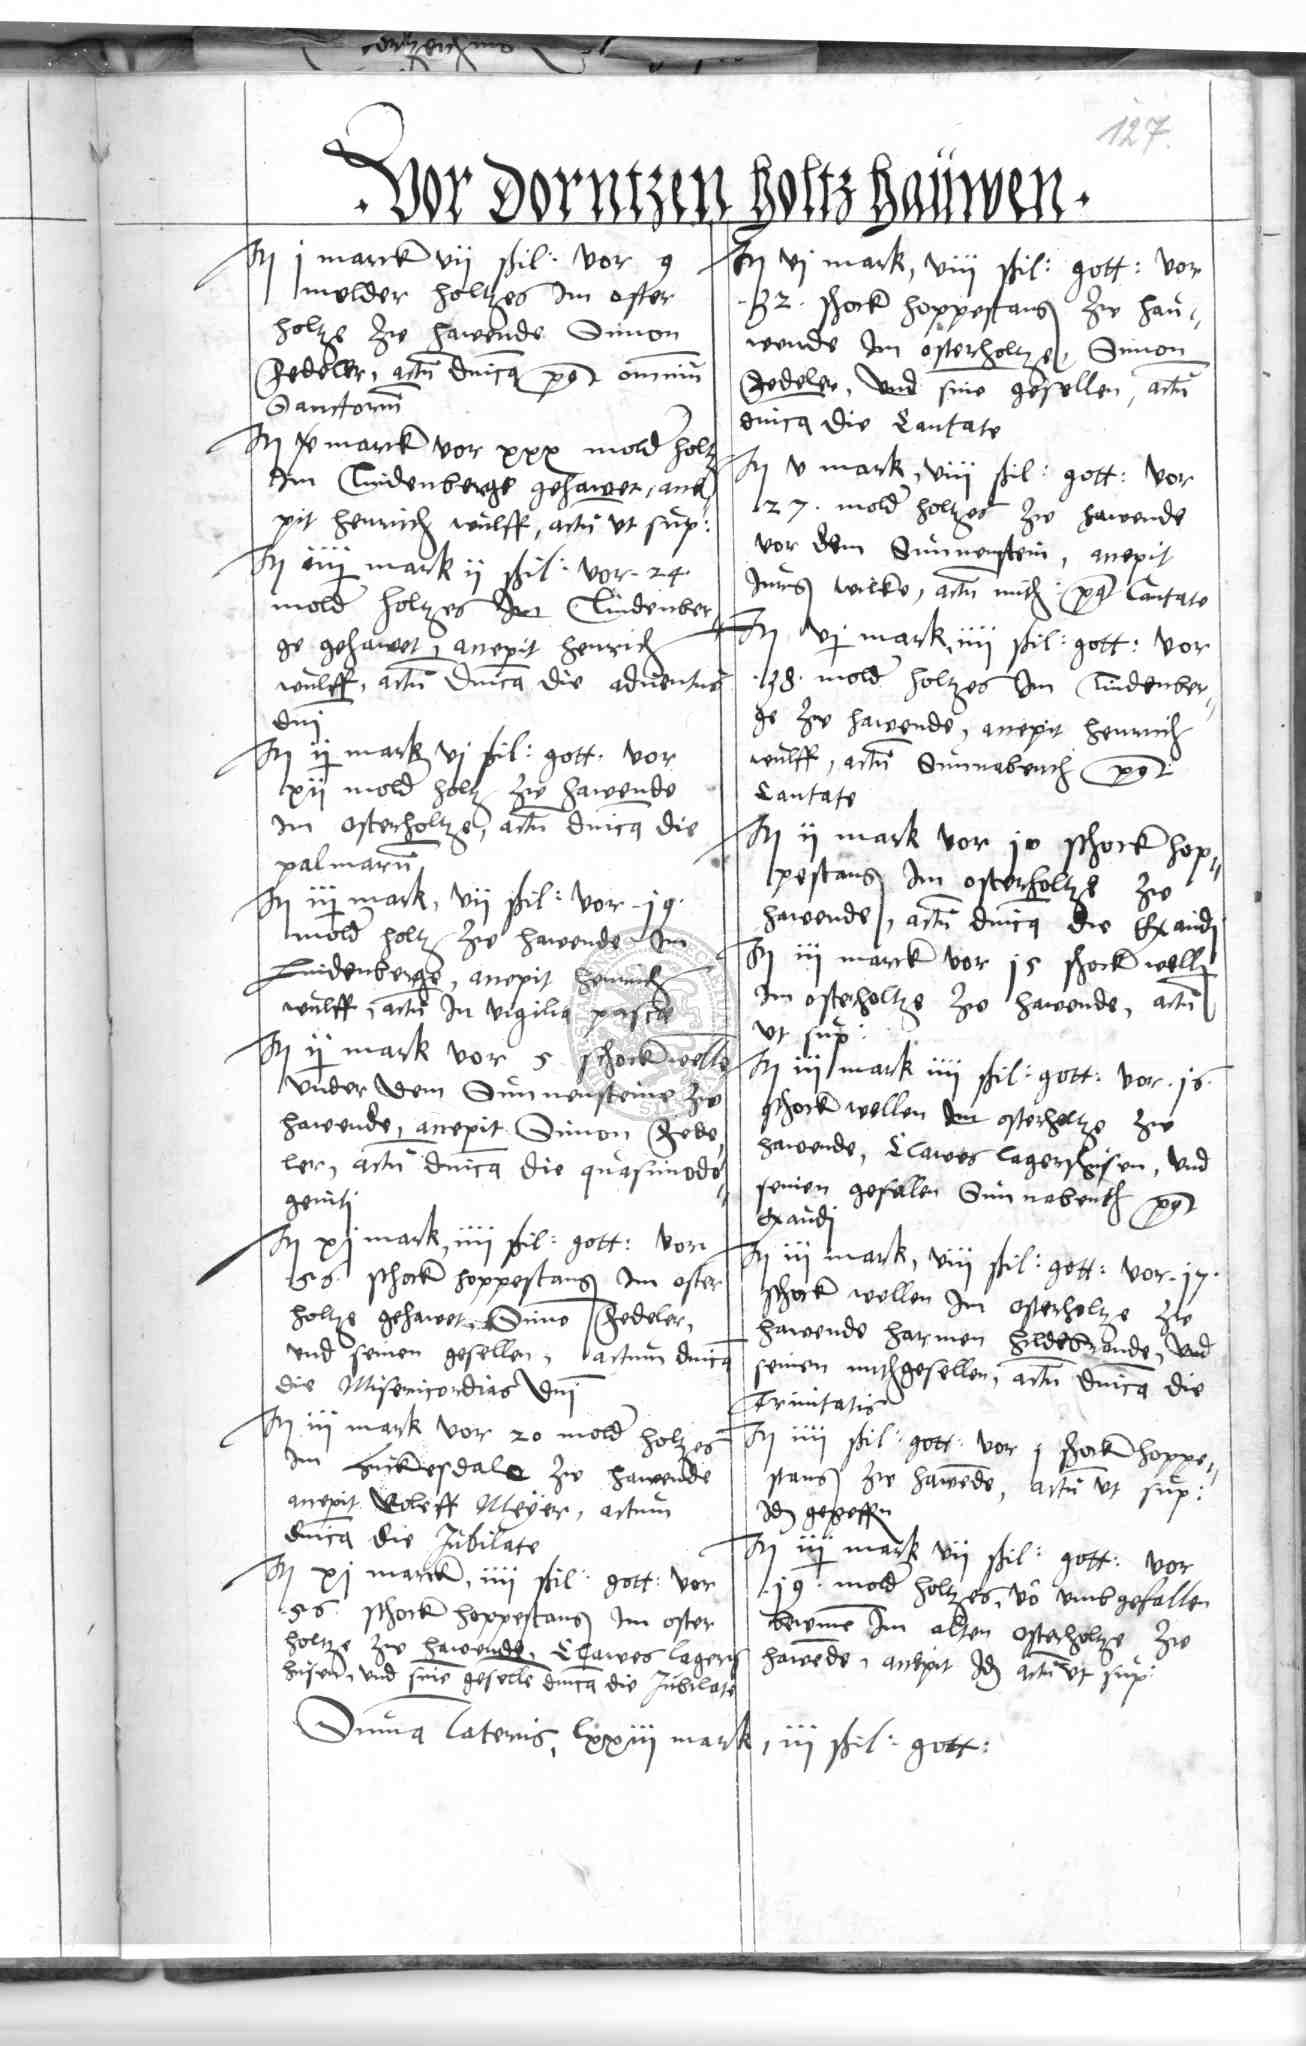 127.
Vor Dorntzen holtz haüwen.
It j marck vij ßil: vor 9
molder holtzes Im oster
holtze zw hawende Simon
Redeler, actū dnica post omniū
Sanctorū
It marck vor xxx mold holtz
Im Lindenberge gehawen, acce
pit Henrich wulff, actū vt sup:
It iiij mark ij ßil: vor 24
mold holtzes Im Lindenber
ge gehawet, accepit Henrich
wulff, actū dnica die aduentus
dnj
It ij mark vj ßil: gott: vor
xij mold holtz zw hawende
Im osterholtze, actū dnica die
palmarū
It iij mark, vij ßil: vor 19
mold holtz zw hawende Im
Lindenberge, accepit Henrich
wulff, actū In vigilia pasce
It ij mark vor 5 schock welle
vnder dem Sunnensteine zw
hawende, accepit Simon Rede
ler, actū dnica die quasimodo
genitj
It xj mark, iiij ßil: gott: vor
56 schock hoppestang Im oster
holtze gehawet, Simō Redeler,
vnd seinen gesellen, actum dnica
die Misericordias dnj
It iij mark vor 20 mold holtzes
Im zw hawende
accepit Roleff Meÿer, actum
dnica die Jubilate
It xj marck, iiij ßil: gott: vor
56 schock hoppestang Im oster
holtze zw hawende, Clawes lagers
husen, vnd sine geselle dnica die Jubilate
It vj mark, viij ßil: gott: vor
32 schock hoppestang zw hau
wende Im osterholtze, Simon
Redeler, vnd sine gesellen, actū
dnica die Cantate
It v mark, viij ßil: gott: vor
27 mold holtzes zw hawende
vor dem Sunnenstein, accepit
wilke, actū post Cantate
It vj mark, iiij ßil: gott: vor
38 mold holtzes Im Lindenber
ge zw hawende, accepit Henrich
wulff, actū Sunnabench post
Cantate
It ij mark vor 10 schock hop
pestang Im osterholtze zw
hawende, actū dnica die Exaudj
It iij marck vor 15 schock well
Im osterholtze zw hawende, actū
vt sup:
It iij mark iiij ßil: gott: vor 16
schock wellen Im osterholtze zw
hawende, Clawes lagershusen, vnd
seinen gesellen Sunnabenth post
Exaudj
It iij mark, viij ßil: gott: vor 17
schock wellen Im osterholtze zw
hawende Harmen Hildebrande, vnd
seinen mithgesellen, actū dnica die
Trinitatis
It iiij ßil: gott: vor j schock hoppe
stang zw hawēde, actū vt sup:
It iij mark vij ßil: gott: vor
19 mold holtzes, vō vmbgefallen
bewmē Im alten osterholtze zw
hawēde, accepit Id actū vt sup:
Suma lateris, lxxiij mark, iij ßil: gott: